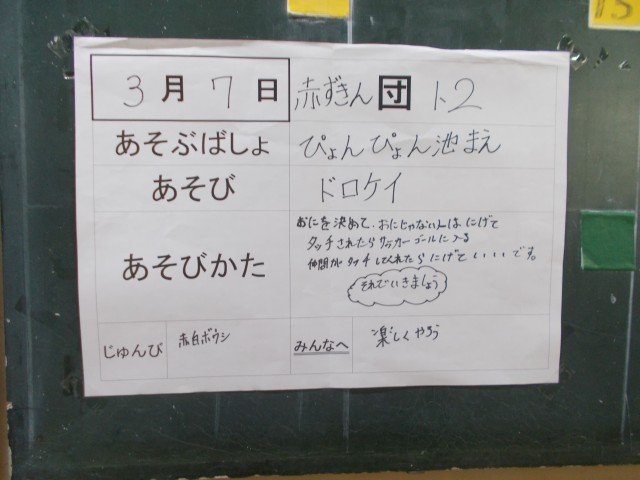 3月7日 赤ずきん団 1、2
あそぶばしょ ぴょんぴょん池まえ
あそび ドロケイ
あそびかた
おにを決めて、おにじゃない人はにげて
タッチされたらサッカーゴールに入る
仲間がタッチしてくれたらにげていいです。
それでいきましょう
じゅんび 赤白ボウシ みんなへ 楽しくやろう
15